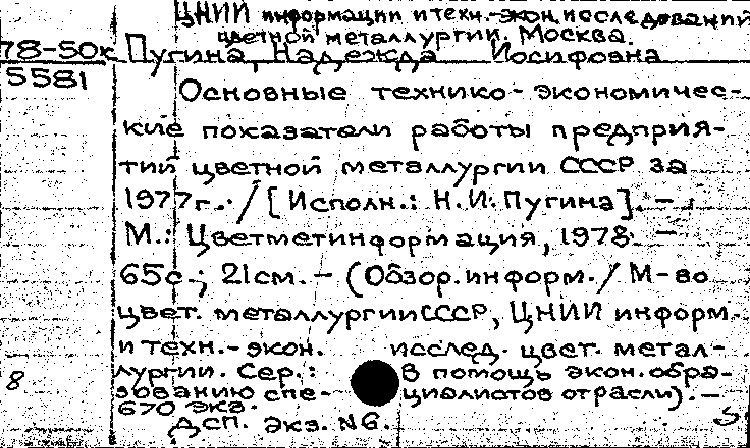 ЦНИИ информации и техн.-экон. исследований
цветной металлургии. Москва.
78-50к Пугина, Надежда Иосифовна
5581
Основные технико-экономичес-
кие показатели работы предприя-
тий цветной металлургии СССР за
1977г../[Исполн.: Н.И. Пугина]. -
М.: Цветметинформация, 1978. -
65с.; 21см. - (Обзор. информ./М-во
цвет. металлургии СССР, ЦНИИ информ.
и техн.-экон. исслед. цвет. метал-
лургии. Сер.: В помощь экон. обра-
8
зованию спе- циалистов отрасли). -
670 экз.
Дсп. Экз. №6.